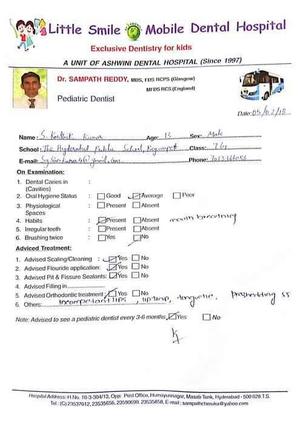 Little Smile Mobile Dental Hospital
Exclusive Dentistry for kids
A UNIT OF ASHWINI DENTAL HOSPITAL (Since 1997)
Dr. SAMPATH REDDY, MDS, FDS RCPS (Glasgow)
MFDS RCS (England)
Pediatric Dentist
Date:
Name: S. Karthik Kumar Age: 13 Sex: Male
School: The Hyderabad Public School, Begumpet Class:
E-mail: Phone:
On Examination:
1. Dental Caries in :
(Cavities)
2. Oral Hygiene Status : Good Average Poor
3. Physiological : Present Absent
Spaces
4. Habits : Present Absent mouth breathing
5. Irregular teeth : Present Absent
6. Brushing twice : Yes No
Adviced Treatment:
1. Advised Scaling/Cleaning : Yes No
2. Advised Flouride application: Yes No
3. Advised Pit & Fissure Sealants: Yes No
4. Advised Filling in
5. Advised Orthodontic treatment : Yes No
6. Others: Incompetent lips,
Note: Advised to see a pediatric dentist every 3-6 months Yes No
Hospital Address: H.No. 10-3-304/13, Opp: Post Office, Humayunnagar, Masab Tank, Hyderabad - 500 028 T.S.